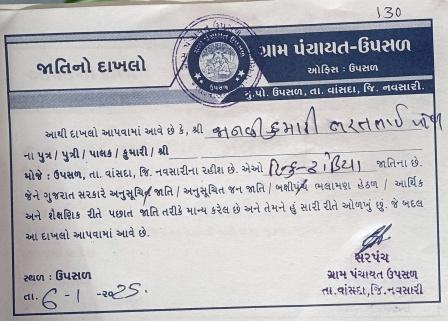 130
જાતિનો દાખલો
ગ્રામ પંચાયત-ઉપસળ
ઓફિસ : ઉપસળ
મુ.પો. ઉપસળ, તા. વાંસદા, જિ. નવસારી.
આથી દાખલો આપવામાં આવે છે કે, શ્રી
ના પુત્ર / પુત્રી / પાલક / કુમારી / શ્રી
મોજે : ઉપસળ, તા. વાંસદા, જિ. નવસારીના રહીશ છે. એઓ હિન્દુ-ઢોડિયા જાતિના છે.
જેને ગુજરાત સરકારે અનુસૂચિત જાતિ / અનુસૂચિત જન જાતિ / બક્ષીપંચ ભલામણ હેઠળ / આર્થિક
અને શૈક્ષણિક રીતે પછાત જાતિ તરીકે માન્ય કરેલ છે અને તેમને હું સારી રીતે ઓળખું છું. જે બદલ
આ દાખલો આપવામાં આવે છે.
સ્થળ : ઉપસળ
તા. 6-1-2025.
સરપંચ
ગ્રામ પંચાયત ઉપસળ
તા.વાંસદા,જિ.નવસારી